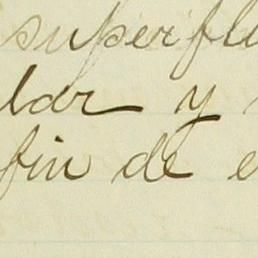 superflu
lar y
fin de e